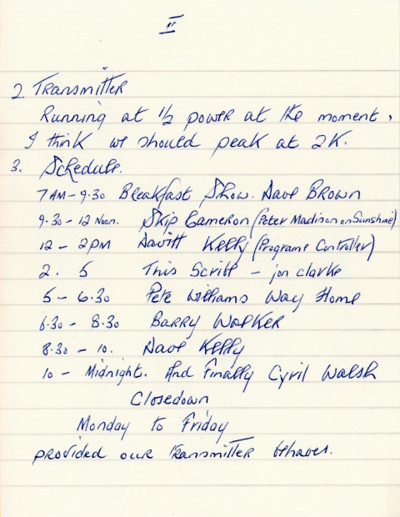 II
2 Transmitter
Running at 1/2 power at the moment,
I think we should peak at 2K.
3. Schedule.
7AM - 9.30 Breakfast Show. Dave Brown
9.30 - 12 Noon. Skip Cameron (Peter Madison on Sunshine)
12 - 2PM Davitt Kelly (Programe Controller)
2. 5 This Scribe - jon clarke
5 - 6.30 Pete Williams Way Home
6.30 - 8.30 Barry Walker
8.30 - 10. Dave Kelly
10 - Midnight. And Finally Cyril Walsh
Closedown
Monday to Friday
provided our transmitter behaves.